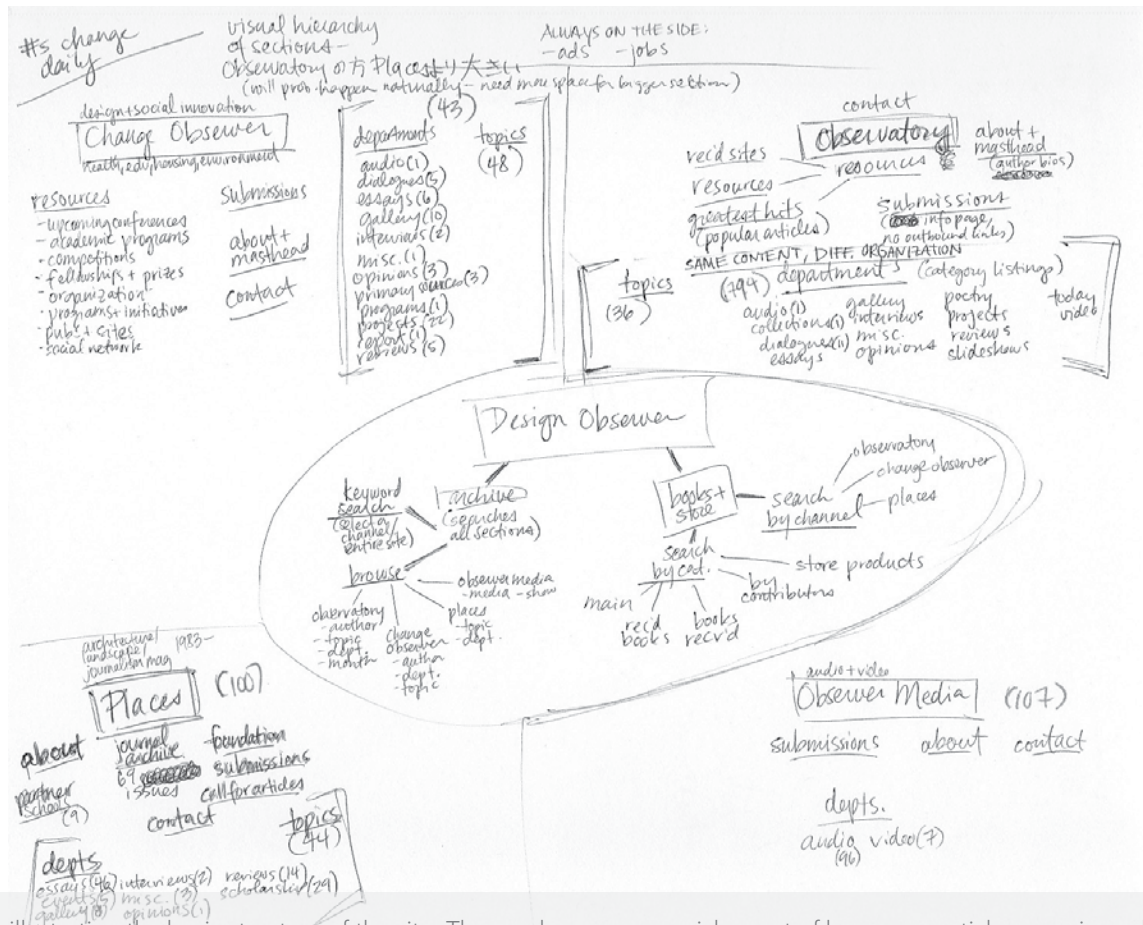 #s change
daily
visual hierarchy
of sections-
Observatory の方 Placesより大きい
(will prob. happen naturally - need more space for bigger section)
ALWAYS ON THE SIDE:
-ads -jobs
design+social innovation
Change Observer
health, edu, housing, environment
resources
- upcoming conferences
- academic programs
- competitions
- fellowships + prizes
- organization
- programs + initiatives
- pubs + sites
- social network
submissions
about +
masthead
contact
(43)
departments
audio (1)
dialogues (5)
essays (6)
gallery (10)
interviews (2)
misc. (1)
opinions (3)
primary sources (3)
programs (1)
projects (22)
report (1)
reviews (5)
topics
(48)
contact
Observatory
rec'd sites
resources
greatest hits
(popular articles)
resources
about +
masthead
(author bios)
submissions
info page,
no outbound links)
SAME CONTENT, DIFF. ORGANIZATION
topics
(36)
(794) departments (category listings)
audio (1)
collections (1)
dialogues (11)
essays
gallery
interviews
misc.
opinions
poetry
projects
reviews
slideshows
today
video
Design Observer
archive
(searches
all sections)
keyword
search
(select a
channel/
entire site)
browse
observatory
- author
- topic
- dept.
- month
change
observer
- author
- dept.
- topic
places
- topic
- dept.
observer media
- media - show
books +
store
search
by channel
observatory
change observer
places
search
by cat.
main
rec'd
books
books
recv'd
by
contributors
store products
architecture/
landscape/
journalism mag
1983-
Places (100)
about
journal
archive
69
issues
foundation
submissions
call for articles
partner
schools
(9)
contact
topics
(44)
depts
essays (46) interviews (2) reviews (14)
events (5) misc. (3) scholarship (29)
gallery opinions (1)
audio + video
Observer Media (107)
submissions about contact
depts.
audio video (7)
(96)